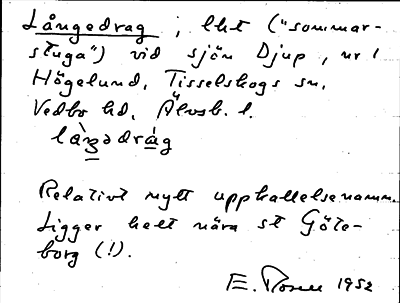 Långedrag ; lht ("sommar-
stuga") vid sjön Djup, nr 1
Högelund, Tisselskogs sn,
Vedbo hd, Älvsb. l.
làŋədrág
Relativt nytt uppkallelsenamn.
Ligger helt nära st Göte-
borg (!).
E. Rosen 1952